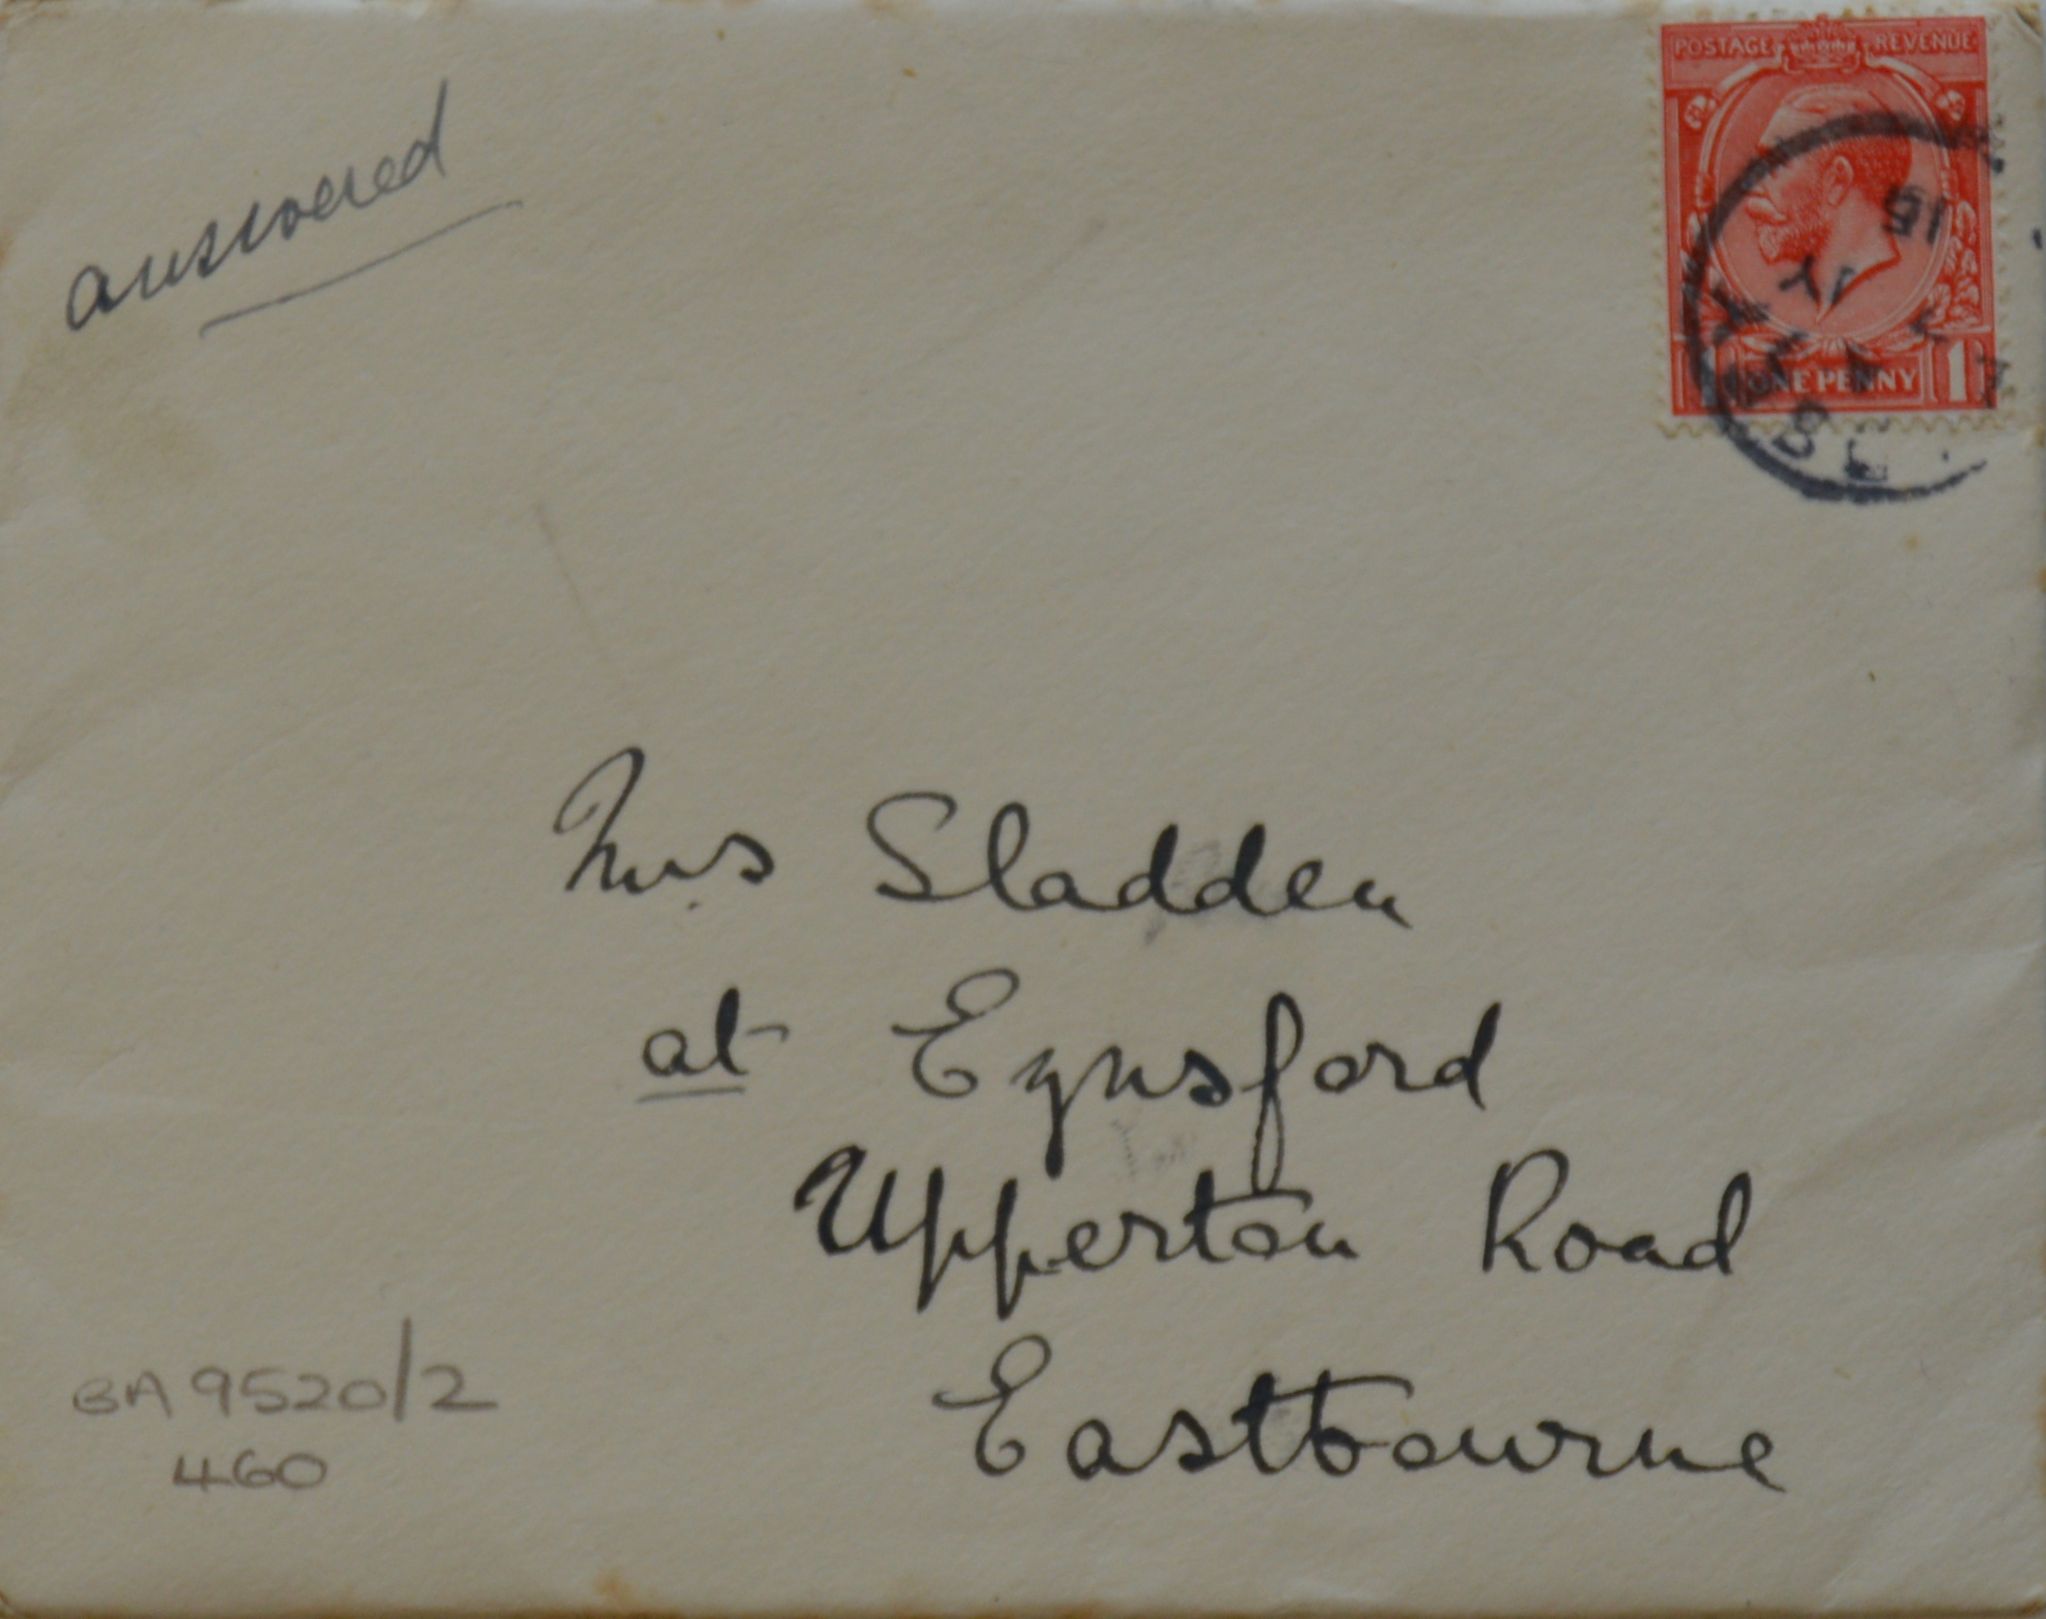 answered
POSTAGE REVENUE
15
MY
ONE PENNY 1
Mrs Sladden
at Eynsford
Upperton Road
Eastbourne
BA 9520/2
460